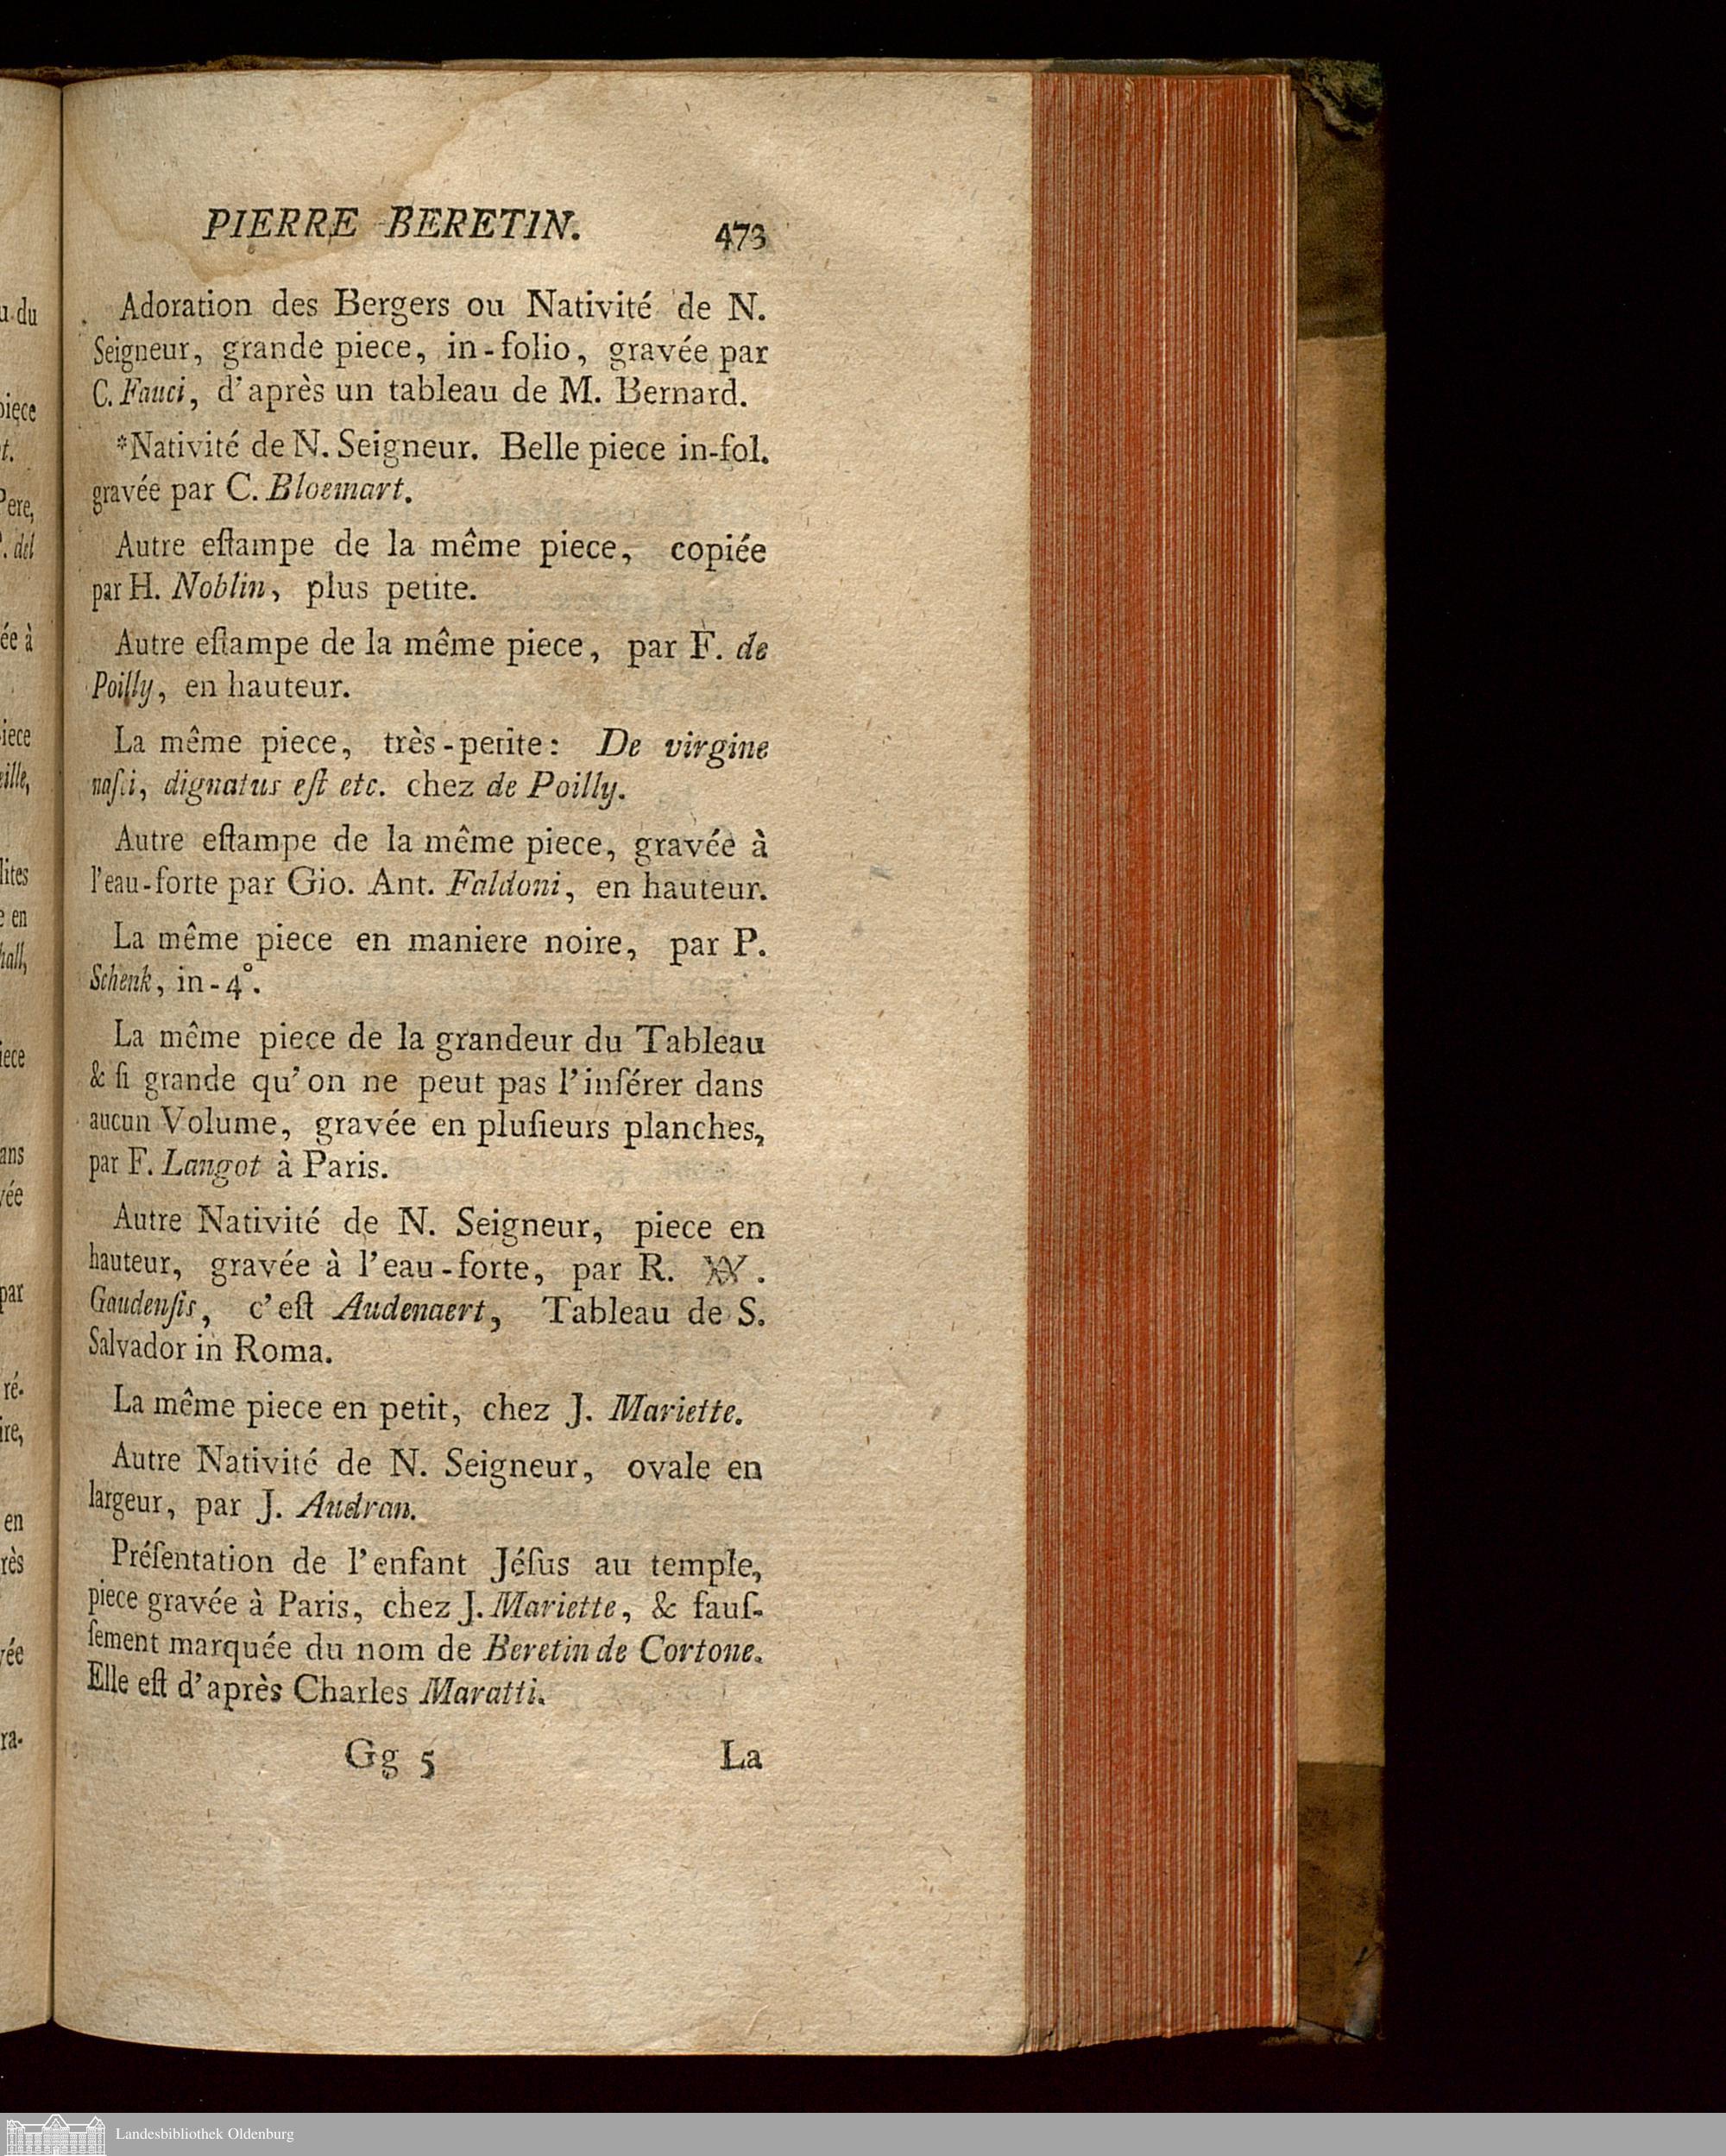 PIERRE BERETIN. 473
Adoration des Bergers ou Nativité de N.
Seigneur, grande piece, in-folio, gravée par
C. Fauci, d'après un tableau de M. Bernard.
*Nativité de N. Seigneur. Belle piece in-fol.
gravée par C. Bloemart.
Autre eſtampe de la même piece, copiée
par H. Noblin, plus petite.
Autre eſtampe de la même piece, par F. de
Poilly, en hauteur.
La même piece, très-petite: De virgine
naſci, dignatus eſt etc. chez de Poilly.
Autre eſtampe de la même piece, gravée à
l'eau-forte par Gio. Ant. Faldoni, en hauteur.
La même piece en maniere noire, par P.
Schenk, in-4°.
La même piece de la grandeur du Tableau
& ſi grande qu'on ne peut pas l'inſérer dans
aucun Volume, gravée en pluſieurs planches,
par F. Langot à Paris.
Autre Nativité de N. Seigneur, piece en
hauteur, gravée à l'eau-forte, par R. .
Gaudenſis, c'eſt Audenaert, Tableau de S.
Salvador in Roma.
La même piece en petit, chez J. Mariette.
Autre Nativité de N. Seigneur, ovale en
largeur, par J. Audran.
Préſentation de l'enfant Jéſus au temple,
piece gravée à Paris, chez J. Mariette, & fauſ-
ſement marquée du nom de Beretin de Cortone.
Elle eſt d'après Charles Maratti.
Gg 5 La
Landesbibliothek Oldenburg